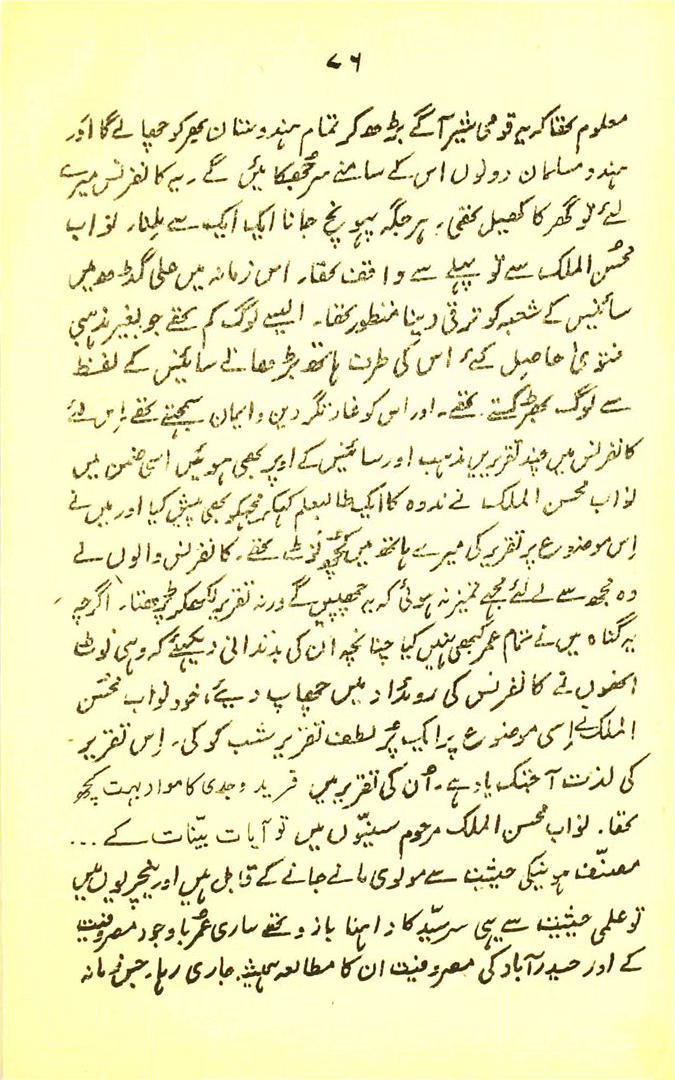 ۷۶
معلوم تھا کہ یہ قومی شیر آگے بڑھ کر تمام ہندوستان بھر کو چھا لے گا اور
ہندو مسلمان دونوں اس کے سامنے سر جھکائیں گے۔ یہ کانفرنس میرے
لئے تو گھر کا کھیل تھی۔ ہر جگہ پہونچ جانا ایک ایک سے ملنا۔ نواب
محسن الملک سے تو پہلے سے واقف تھا۔ اس زمانہ میں علی گڈھ میں
سائنس کے شعبہ کو ترقی دینا منظور تھا۔ ایسے لوگ کم تھے جو بغیر مذہبی
فتویٰ حاصل کئے اس کی طرف ہاتھ بڑھاتے سائنس کے لفظ
سے لوگ بھڑکتے تھے۔ اور اس کو غارتگر دین و ایمان سمجھتے تھے۔ اِس لئے
کانفرنس میں چند تقریریں مذہب اور سائنس کے اوپر بھی ہوئیں اسی ضمن میں
نواب محسن الملک نے ندوہ کا ایک طالبعلم کہکر مجھکو بھی پیش کیا اور میں نے
اِس موضوع پر تقریر کی میرے ہاتھ میں کچھ نوٹ تھے۔ کانفرنس والوں نے
وہ مجھ سے لے لئے مجھے تمیز نہ ہوئی کہ یہ چھپیں گے ورنہ تقریر لکھکر پڑھتا۔ اگرچہ
یہ گناہ میں نے تمام عمر کبھی نہیں کیا چنانچہ ان کی بذندانی دیکھئے کہ وہی نوٹ
انھوں نے کانفرنس کی روئداد میں چھاپ دیئے، خود نواب محسن
الملک نے اِسی موضوع پر ایک پُر لطف تقریر شب کو کی۔ اِس تقریر
کی لذت آجتک یاد ہے۔ اُن کی تقریر میں فرید وجدی کا مواد بہت کچھ
تھا۔ نواب محسن الملک مرحوم سنیّوں میں تو آیات بیّنات کے ...
مصنّف ہونیکی حیثیت سے مولوی مانے جانے کے قابل ہیں اور نیچریوں میں
تو علمی حیثیت سے یہی سرسیّد کا داہنا بازو تھے ساری عمر باوجود مصروفیت
کے اور حیدرآباد کی مصروفیت ان کا مطالعہ ہمیشہ جاری رہا۔ جس زمانہ